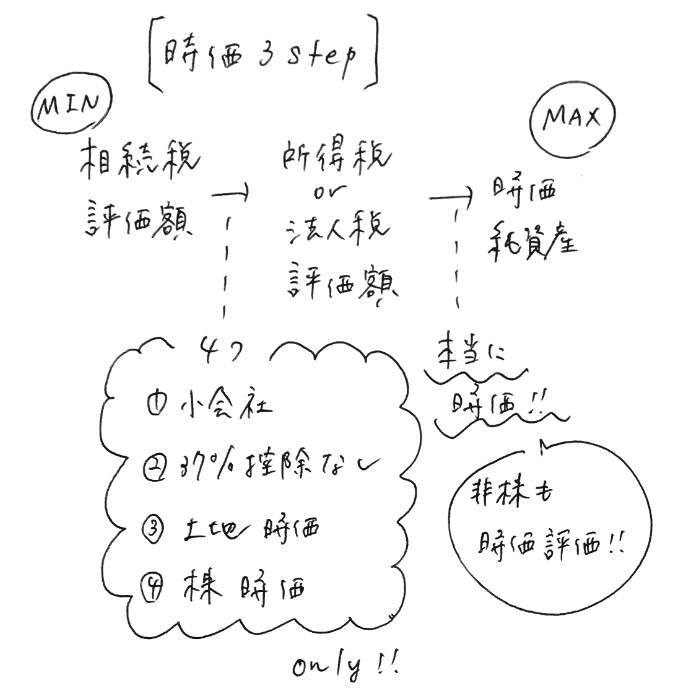 [時価 3 step]
MIN
MAX
相続税
評価額
→
所得税
or
法人税
評価額
→
時価
純資産
4つ
① 小会社
② 37%控除なし
③ 土地 時価
④ 株 時価
only!!
本当に
時価!!
非株も
時価評価!!